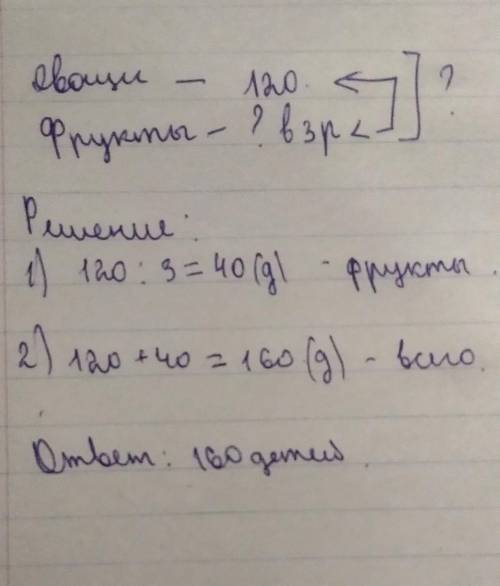 Овощи – 120.
Фрукты – ? в 3 р < ?
Решение:
1) 120 : 3 = 40 (д) - фрукты.
2) 120 + 40 = 160 (д) - всего.
Ответ: 160 детей.